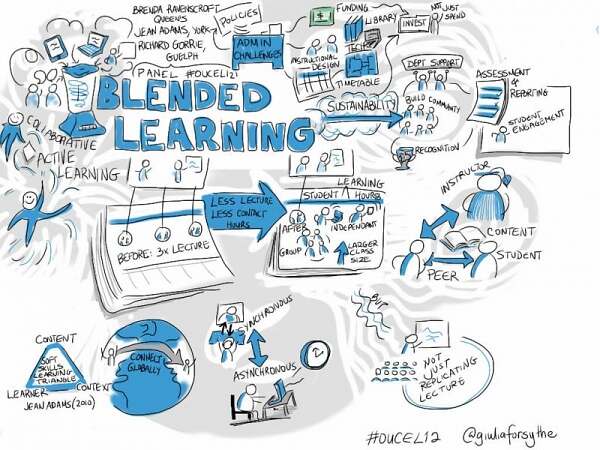 BRENDA RAVENSCROFT
QUEENS
JEAN ADAMS, YORK
RICHARD GORRIE,
GUELPH
PANEL #OUCEL12
POLICIES
ADMIN
CHALLENGES
$
FUNDING
LIBRARY
INSTRUCTIONAL
DESIGN
TECH
TIMETABLE
INVEST
NOT JUST
SPEND
DEPT SUPPORT
ASSESSMENT
&
REPORTING
BLENDED
LEARNING
SUSTAINABILITY
BUILD COMMUNITY
RECOGNITION
STUDENT
ENGAGEMENT
COLLABORATIVE
ACTIVE
LEARNING
BEFORE: 3x LECTURE
LESS LECTURE
LESS CONTACT
HOURS
LEARNING
STUDENT HOURS
AFTER
INDEPENDANT
GROUP
LARGER
CLASS
SIZE
INSTRUCTOR
CONTENT
STUDENT
PEER
CONTENT
SOFT
SKILLS
LEARNING
TRIANGLE
LEARNER
CONTEXT
JEAN ADAMS (2010)
CONNECT
GLOBALLY
SYNCHRONOUS
ASYNCHRONOUS
BUT
NOT
JUST
REPLICATING
LECTURE
#OUCEL12 @giuliaforsythe